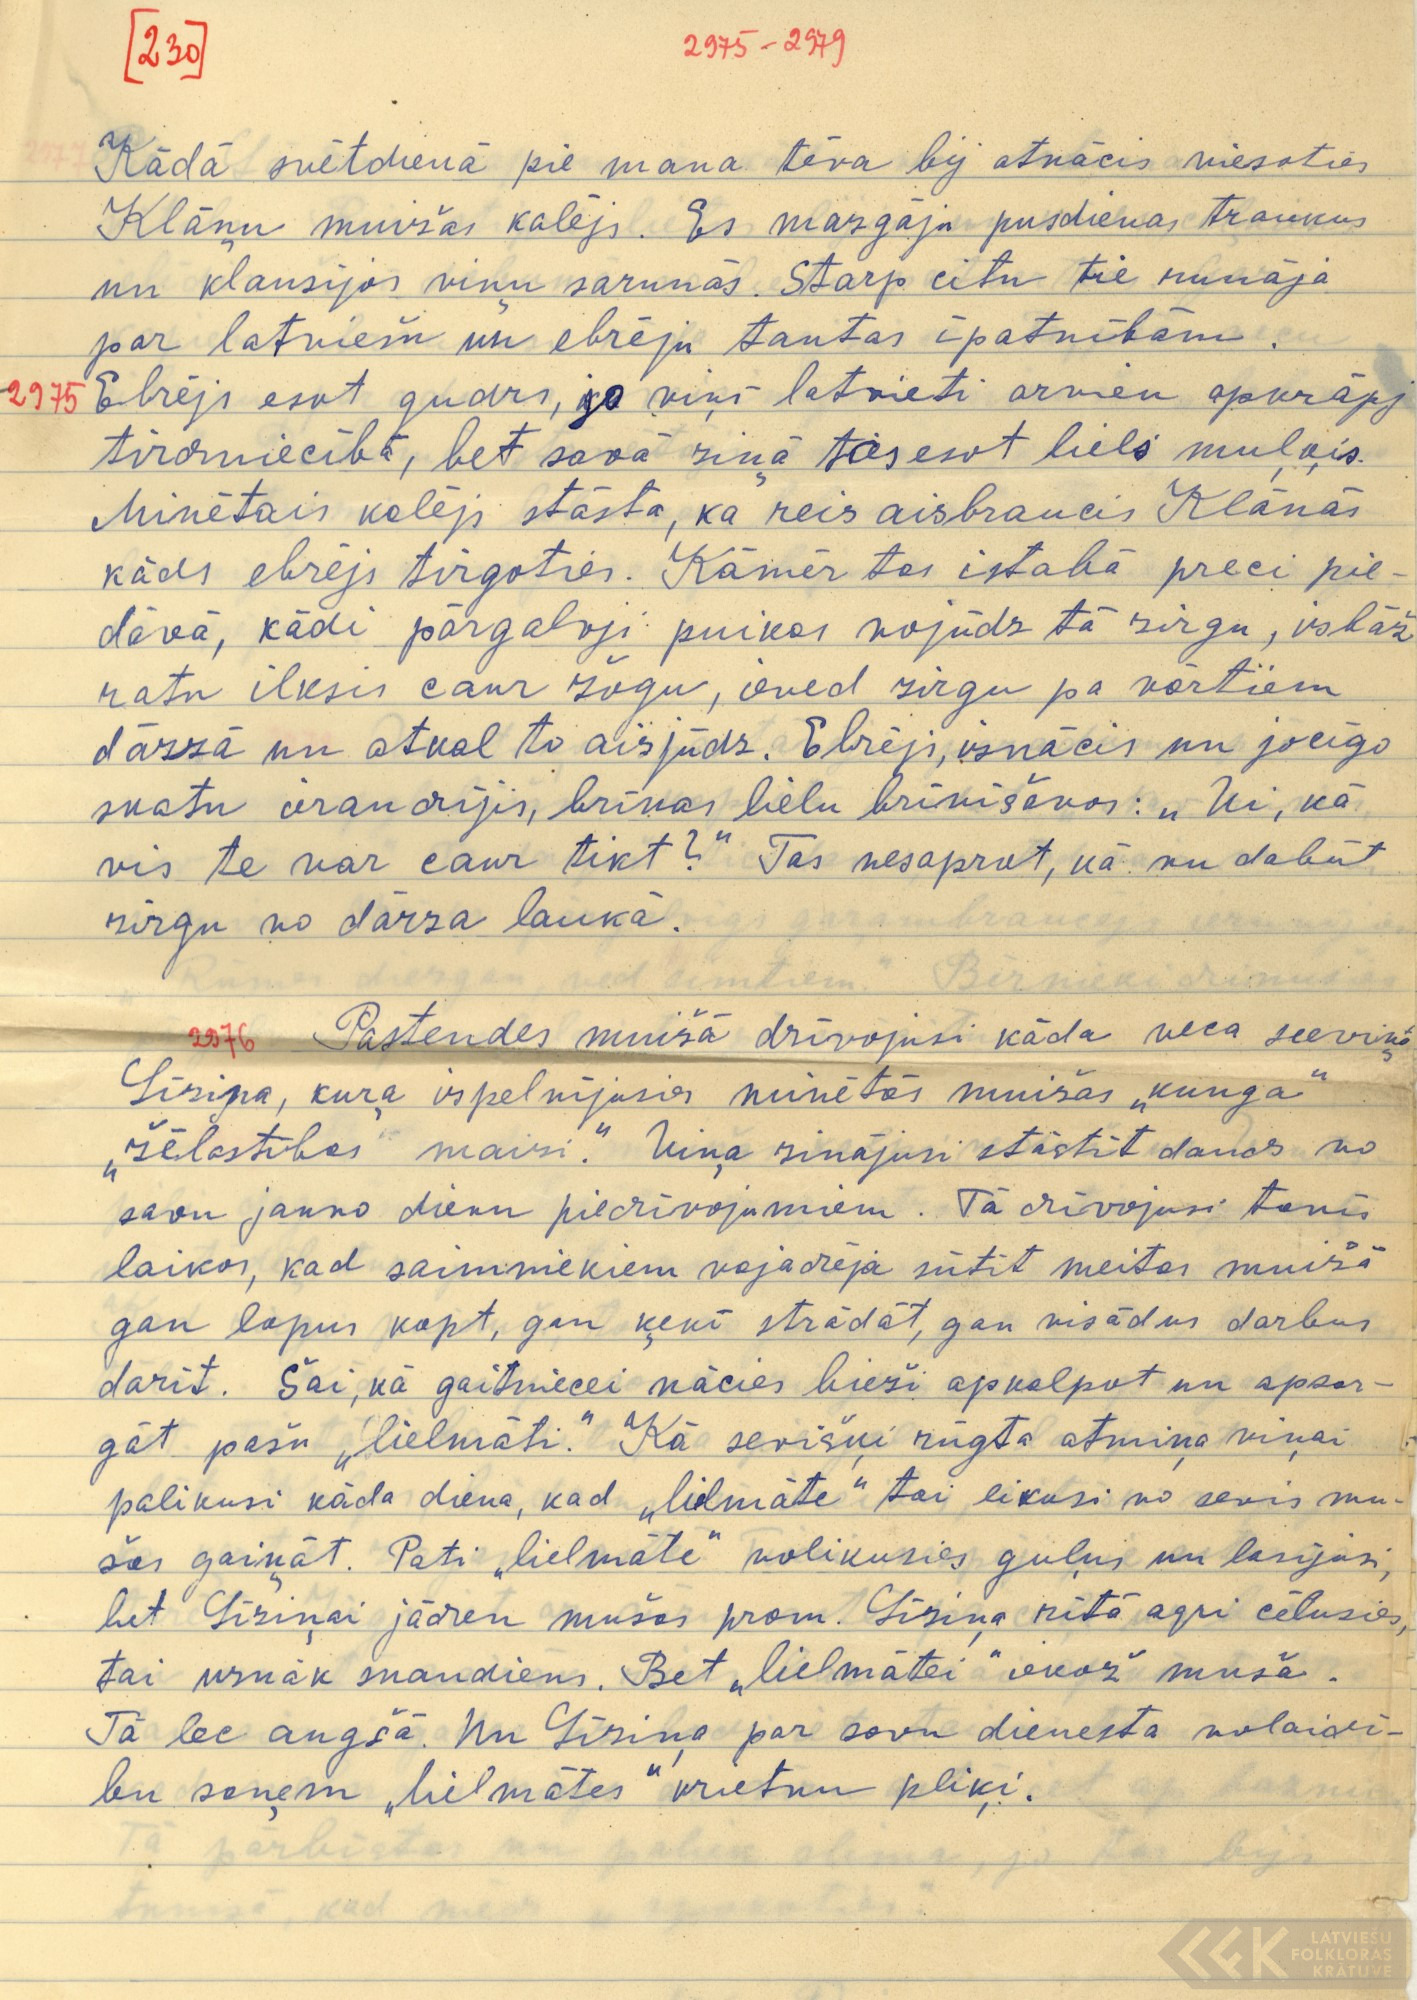 [230]
2975-2979
Kādā svētdienā pie mana tēva bij atnācis viesoties
Klāņu muižas kalējs. Es mazgāju pusdienas traukus
un klausījos viņu sarunās. Starp citu tie runāja
par latviešu un ebrēju tautas īpatnībām.
2975 Ebrējs esot gudrs, jo viņš latvieti arvien apkrāpj
tirdzniecībā, bet savā ziņā tas esot liels muļķis.
Minētais kalējs stāsta, ka reiz aizbraucis Klānās
kāds ebrējs tirgoties. Kāmēr tas istabā preci pie-
dāvā, kādi pārgalvji puikas nojūdz tā zirgu, izbāž
ratu ilksis caur žogu, ieved zirgu pa vārtiem
dārzā un atkal to aizjūdz. Ebrējs, iznācis un jocīgo
skatu ieraudzījis, brīnas lielu brīnišanos: „Ui, kā
vis te var caur tikt?" Tas nesaprot, kā nu dabūt
zirgu no dārza laukā.
2976 Pastendes muižā dzīvojusi kāda veca sieviņa
Līziņa, kuŗa izpelnījusies minētās muižas „kunga"
„žēlastības maizi." Viņa zinājusi stāstīt daudz no
savu jauno dienu piedzīvojumiem. Tā dzīvojusi tanīs
laikos, kad saimniekiem vajadzēja sūtīt meitas muižā
gan lopus kopt, gan ķēķī strādāt, gan visādus darbus
darīt. Šai, kā gaitniecei nācies bieži apkalpot un apsar-
gāt pašu „lielmāti." Kā sevišķi rūgta atmiņa viņai
palikusi kāda diena, kad „lielmāte" tai likusi no sevis mu-
šas gaiņāt. Pati „lielmāte" nolikusies guļus un lasījusi,
bet Līziņai jādzen mušas prom. Līziņa rītā agri cēlusies,
tai uznāk snaudiens. Bet „lielmātei" iekož muša.
Tā lec augšā. Un Līziņa par savu dienesta nolaidī-
bu saņem „lielmātes" krietnu pliķi.
LATVIEŠU
FOLKLORAS
KRĀTUVE